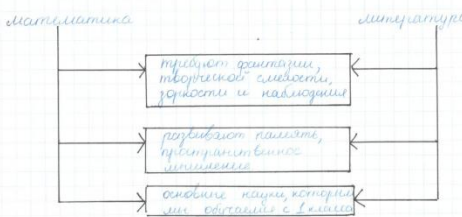 математика
литература
требуют фантазии,
творческой смелости,
зоркости и наблюдения
развивают память,
пространственное
мышление
основные науки, которым
мы обучаемся с 1 класса